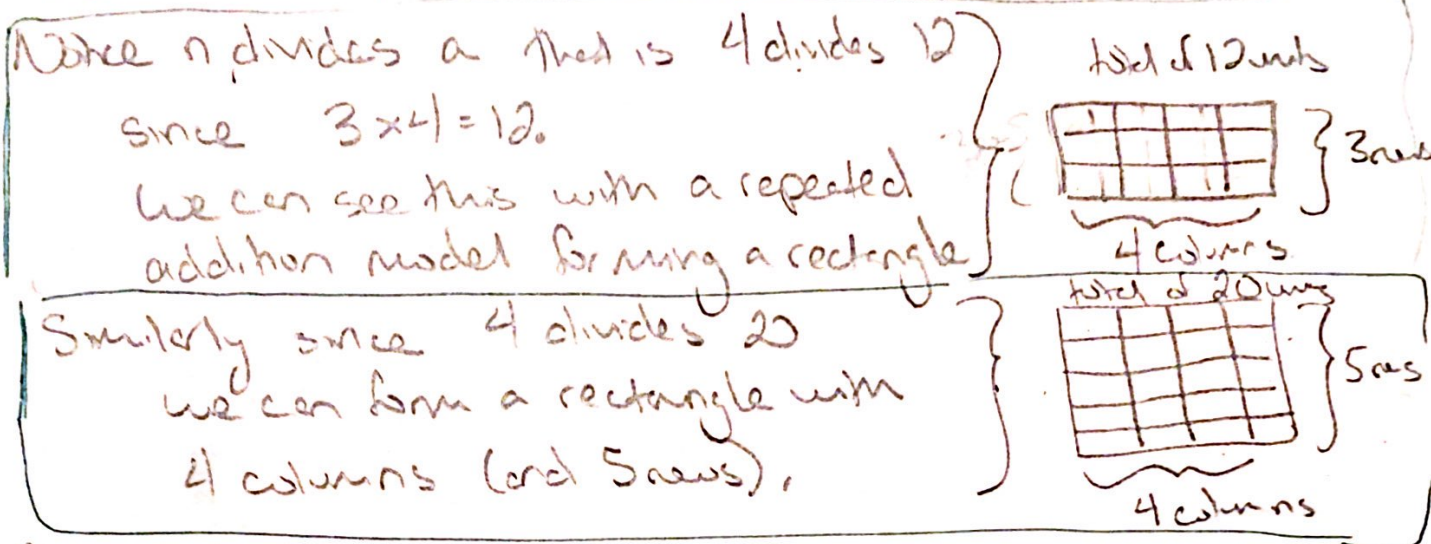 Notice n divides a that is 4 divides 12
since 3 x 4 = 12.
we can see this with a repeated
addition model forming a rectangle
total of 12 units
3 rows
4 columns
Similarly since 4 divides 20
we can form a rectangle with
4 columns (and 5 rows).
total of 20 units
5 rows
4 columns